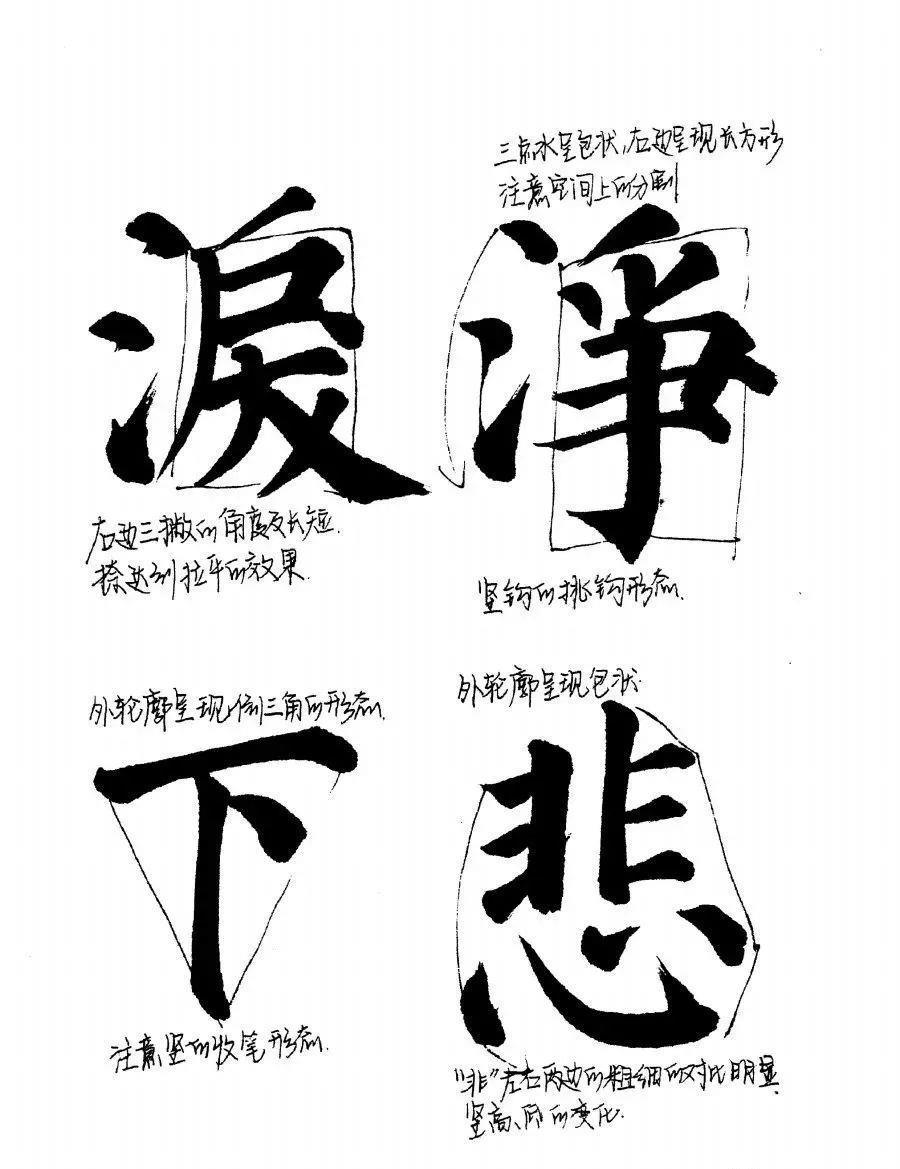 三点水呈包状,右边呈现长方形
注意空间上的分割
淨
竖钩的挑钩形态.
淚
右边三撇的角度及长短.
捺达到拉平的效果.
外轮廓呈现包状.
悲
"非"左右两边的粗细的对比明显.
竖高、低的变化.
外轮廓呈现倒三角的形态.
下
注意竖的收笔形态.